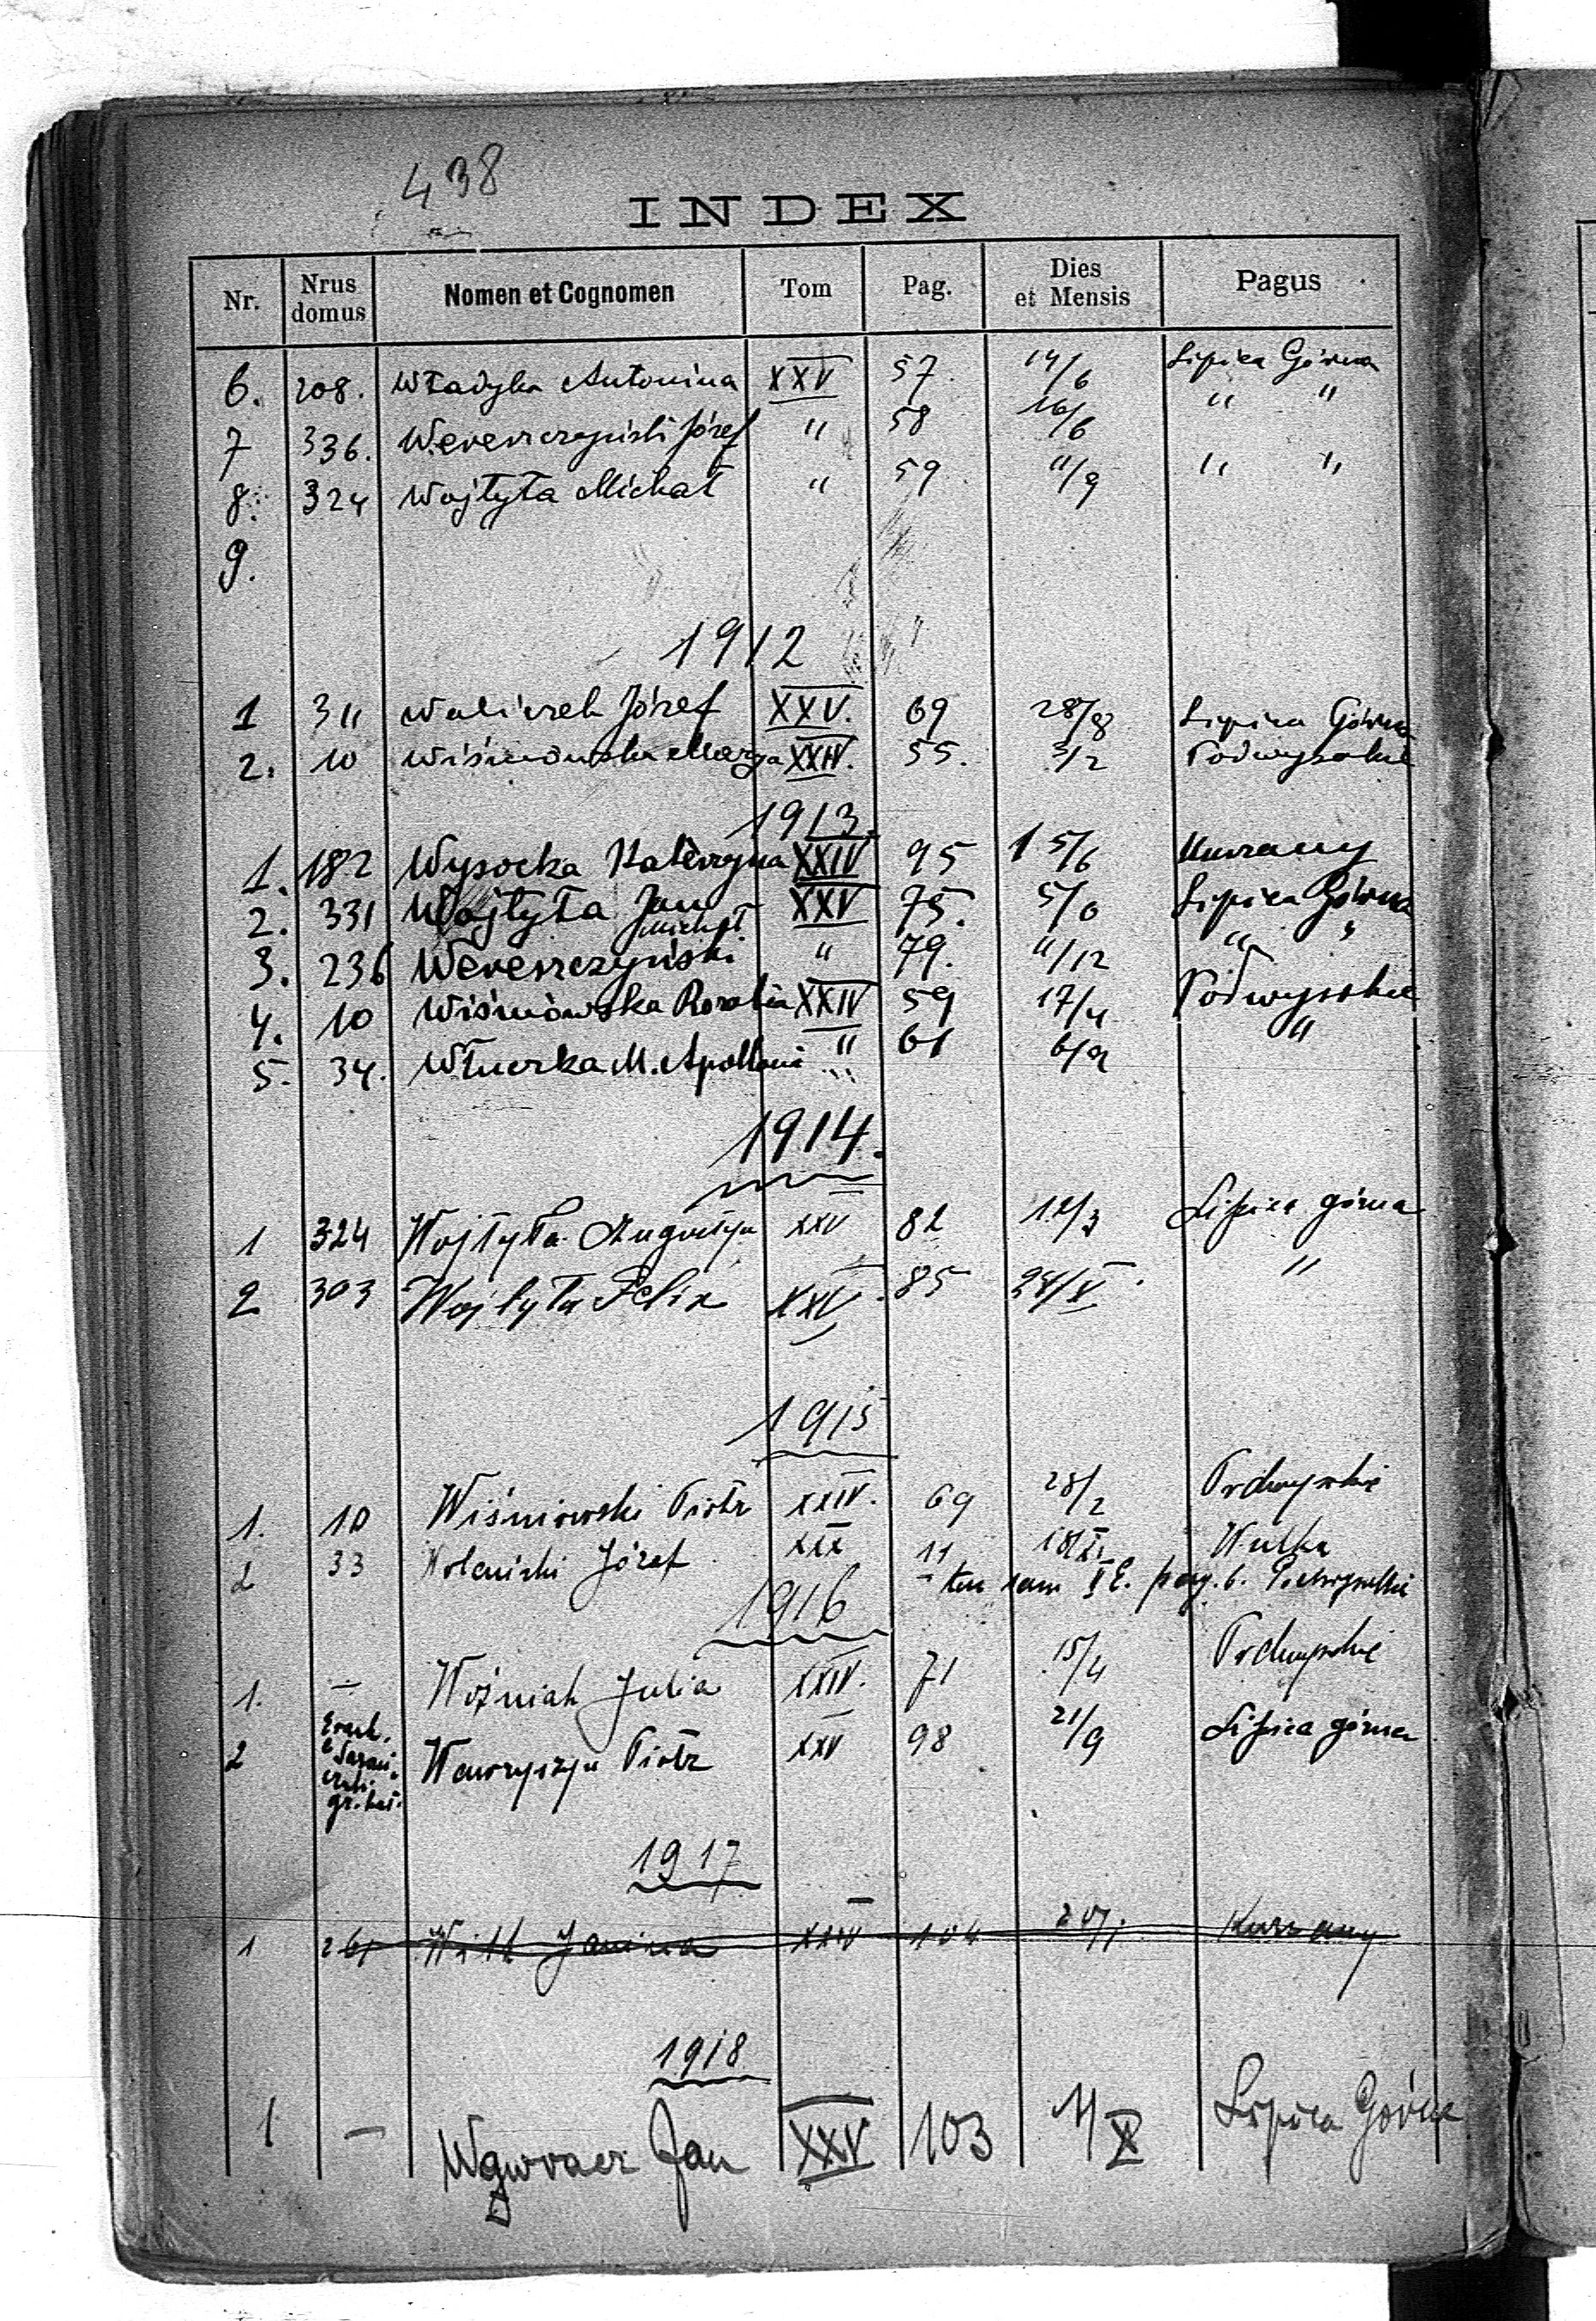 438
INDEX
Nr. Nrus domus Nomen et Cognomen Tom Pag. Dies et Mensis Pagus
6. 208. Władyka Antonina XXV 57. 14/6 Lipica Górna
7 336. Wereszczyński Józef " 58 16/6 " "
8. 324 Wojtyła Michał " 59 11/9 " "
9.
1912
1 311 Waliczek Józef XXV. 69 28/8 Lipica Górna
2. 10 Wiśniowska Marya XXIV. 55. 3/2 Podwysokie
1913.
1. 182 Wysocka Katarzyna XXIV 95 15/6 Kurzany
2. 331 Wojtyła Jan XXV 75. 5/6 Lipica Górna
3. 236 Wereszczyński Michał " 79. 11/12 " "
4. 10 Wiśniowska Rozalia XXIV 59 17/4 Podwysokie
5. 34. M. Apollonia " 61 6/9 "
1914.
1 324 Wojtyła Augustyn XXV 82 12/3 Lipica górna
2 303 Wojtyła Felix XXV 85 24/V. "
1915
1. 10 Wiśniowski Piotr XXIV. 69 28/2 Podwysokie
2 33 Józef XIX 11 18/XI Wulka
ten sam pag. 6. Podwysokie
1916
1. — Woźniak Julia XXIV. 71 15/4 Podwysokie
2 gr. kat. Wawryszyn Piotr XXV 98 21/9 Lipica górna
1917
1 261 Witt Janina XXIV 104 Kurzany
1918
1 — Jan XXV 103 1/X Lipica Górna